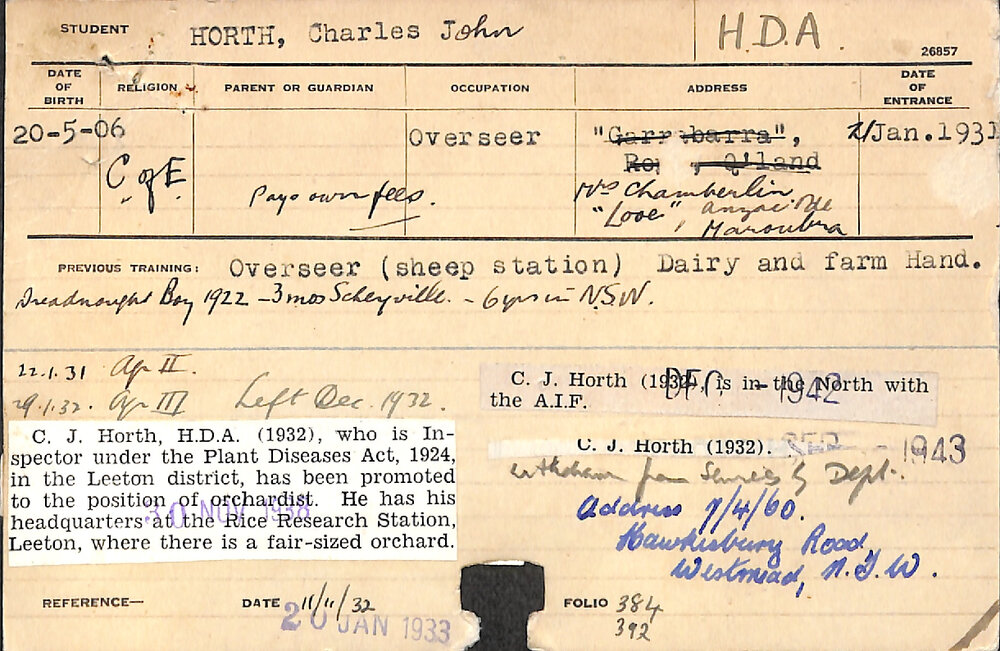 STUDENT HORTH, Charles John H.D.A.
26857
DATE OF BIRTH RELIGION PARENT OR GUARDIAN OCCUPATION ADDRESS DATE OF ENTRANCE
20-5-06 Overseer 21/Jan.1931
Q'land
C of E Pays own fees. Mrs Chamberlin
"Looe", Anzac Pde
Maroubra
PREVIOUS TRAINING: Overseer (sheep station) Dairy and farm Hand.
Dreadnought Boy 1922 - 3 mos Scheyville. - 6 yrs in N.S.W.
22.1.31 Ag II.
29.1.32. Ag III Left Dec. 1932.
C. J. Horth, H.D.A. (1932), who is In-
spector under the Plant Diseases Act, 1924,
in the Leeton district, has been promoted
to the position of orchardist. He has his
headquarters at the Rice Research Station,
Leeton, where there is a fair-sized orchard.
30 NOV 1938
C. J. Horth (1932), is in the North with
the A.I.F.
DEC - 1942
C. J. Horth (1932). SEP - 1943
withdrawn from Services by Dept.
Address 7/4/60.
Hawkesbury Road,
Westmead, N.S.W.
REFERENCE— DATE 11/11/32 FOLIO 384
20 JAN 1933 392